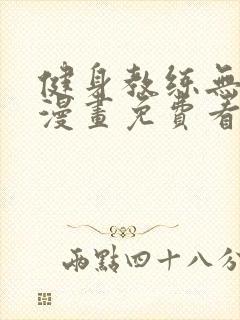 健身教练無
漫畫免費看
兩點四十八分